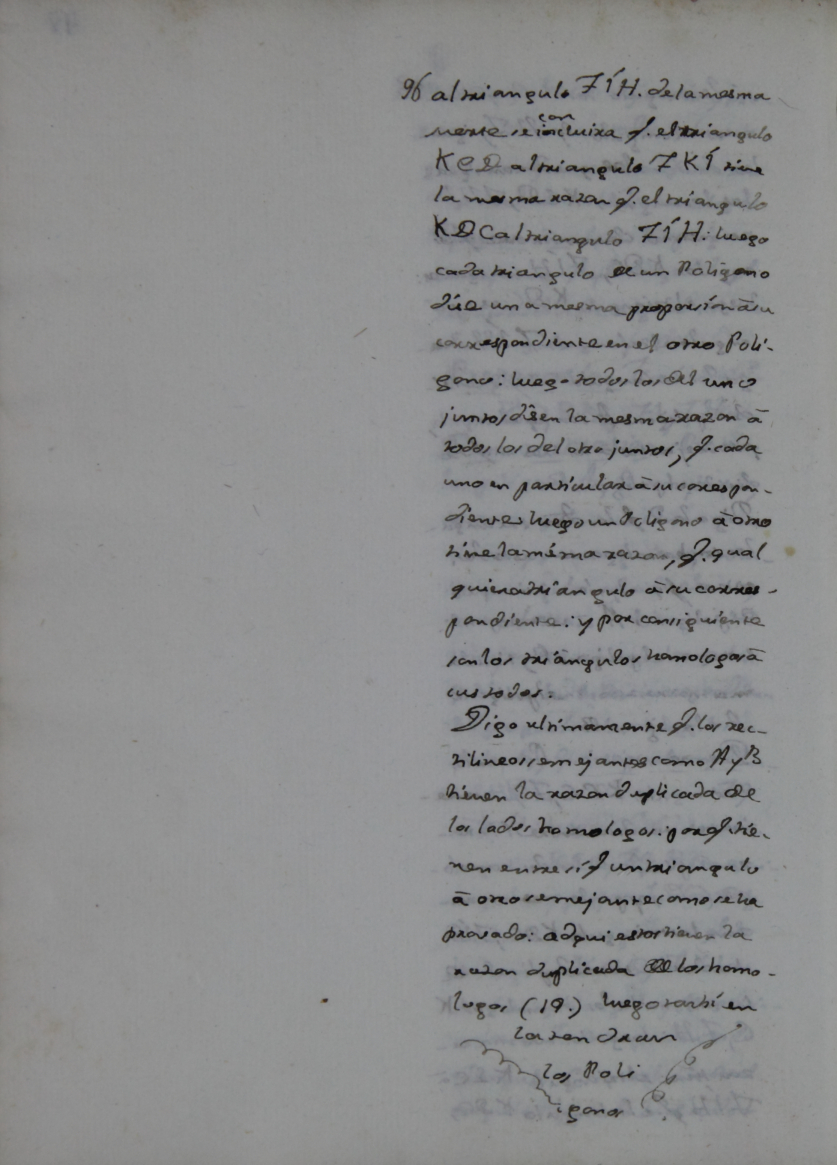 96 al triangulo 7ÍH. de la mesma
mente se incluira con q. el triangulo
KED al triangulo 7KÍ tine
la mesma razon q. el triangulo
KDC al triangulo 7ÍH: luego
cada triangulo de un Poligono
díce una mesma proporsíon â su
correspondiente en el otro Polí-
gono: luego todos los del uno
juntos dicen la mesma razon â
todos los del otro juntos, q. cada
uno en particular â su correspon-
diente luego un Poligono â otro
tine la mésma razon, q. qual
quiera triangulo â su corres-
pondiente: y por consiguiente
son los triângulos homologos â
sus todos.
Digo ultimamente q. los rec-
tilineos semejantes como A y B
tienen la razon duplicada de
los lados homologos: porq. tíe-
nen entre sí q. un triangulo
â otro semejante como se ha
provado: adqui estos tienen la
razon duplicada de los homo-
logos (19.) luego tambí en
la tendran
los Poli
gonos